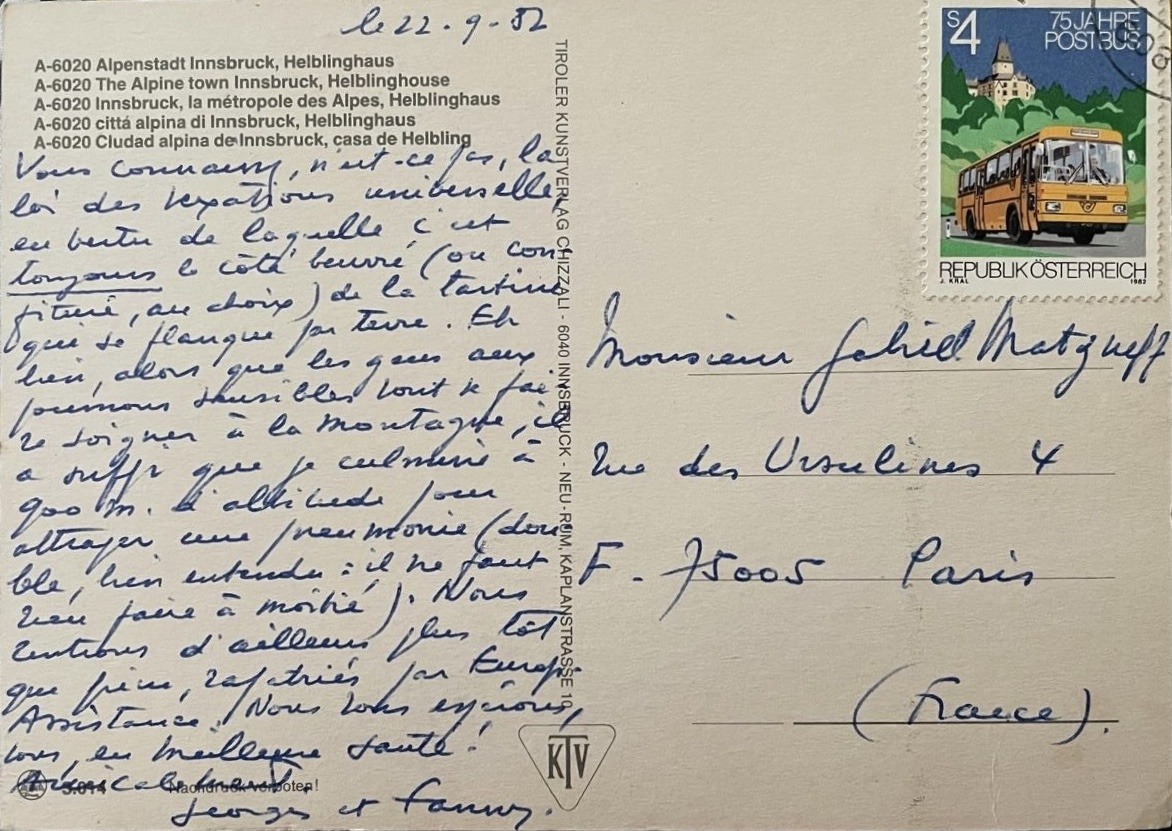 le 22-9-82
A-6020 Alpenstadt Innsbruck, Helblinghaus
A-6020 The Alpine town Innsbruck, Helblinghouse
A-6020 Innsbruck, la métropole des Alpes, Helblinghaus
A-6020 cittá alpina di Innsbruck, Helblinghaus
A-6020 Ciudad alpina de Innsbruck, casa de Helbling
Vous connaissez, n'est-ce pas, la
loi des vexations universelles,
en vertu de laquelle c'est
toujours le côté beurré (ou con-
fituré, au choix) de la tartine
qui se flanque par terre. Eh
bien, alors que les gens aux
poumons sensibles vont se fai-
re soigner à la montagne, il
a suffi que je culmine à
900 m. d'altitude pour
attraper une pneumonie (dou-
ble, bien entendu : il ne faut
rien faire à moitié). Nous
rentrons d'ailleurs plus tôt
que prévu, rapatriés par Europ-
Assistance. Nous vous espérons,
vous, en meilleure santé !
Amicalement
Georges et Fanny.
5.014 Nachdruck verboten!
TIROLER KUNSTVERLAG CHIZZALI - 6040 INNSBRUCK - NEU-RUM, KAPLANSTRASSE 10
KTV
S4
75 JAHRE
POSTBUS
REPUBLIK ÖSTERREICH
J. KRAL 1982
Monsieur Gabriel Matzneff
Rue des Ursulines 4
F. 75005 Paris
(France).